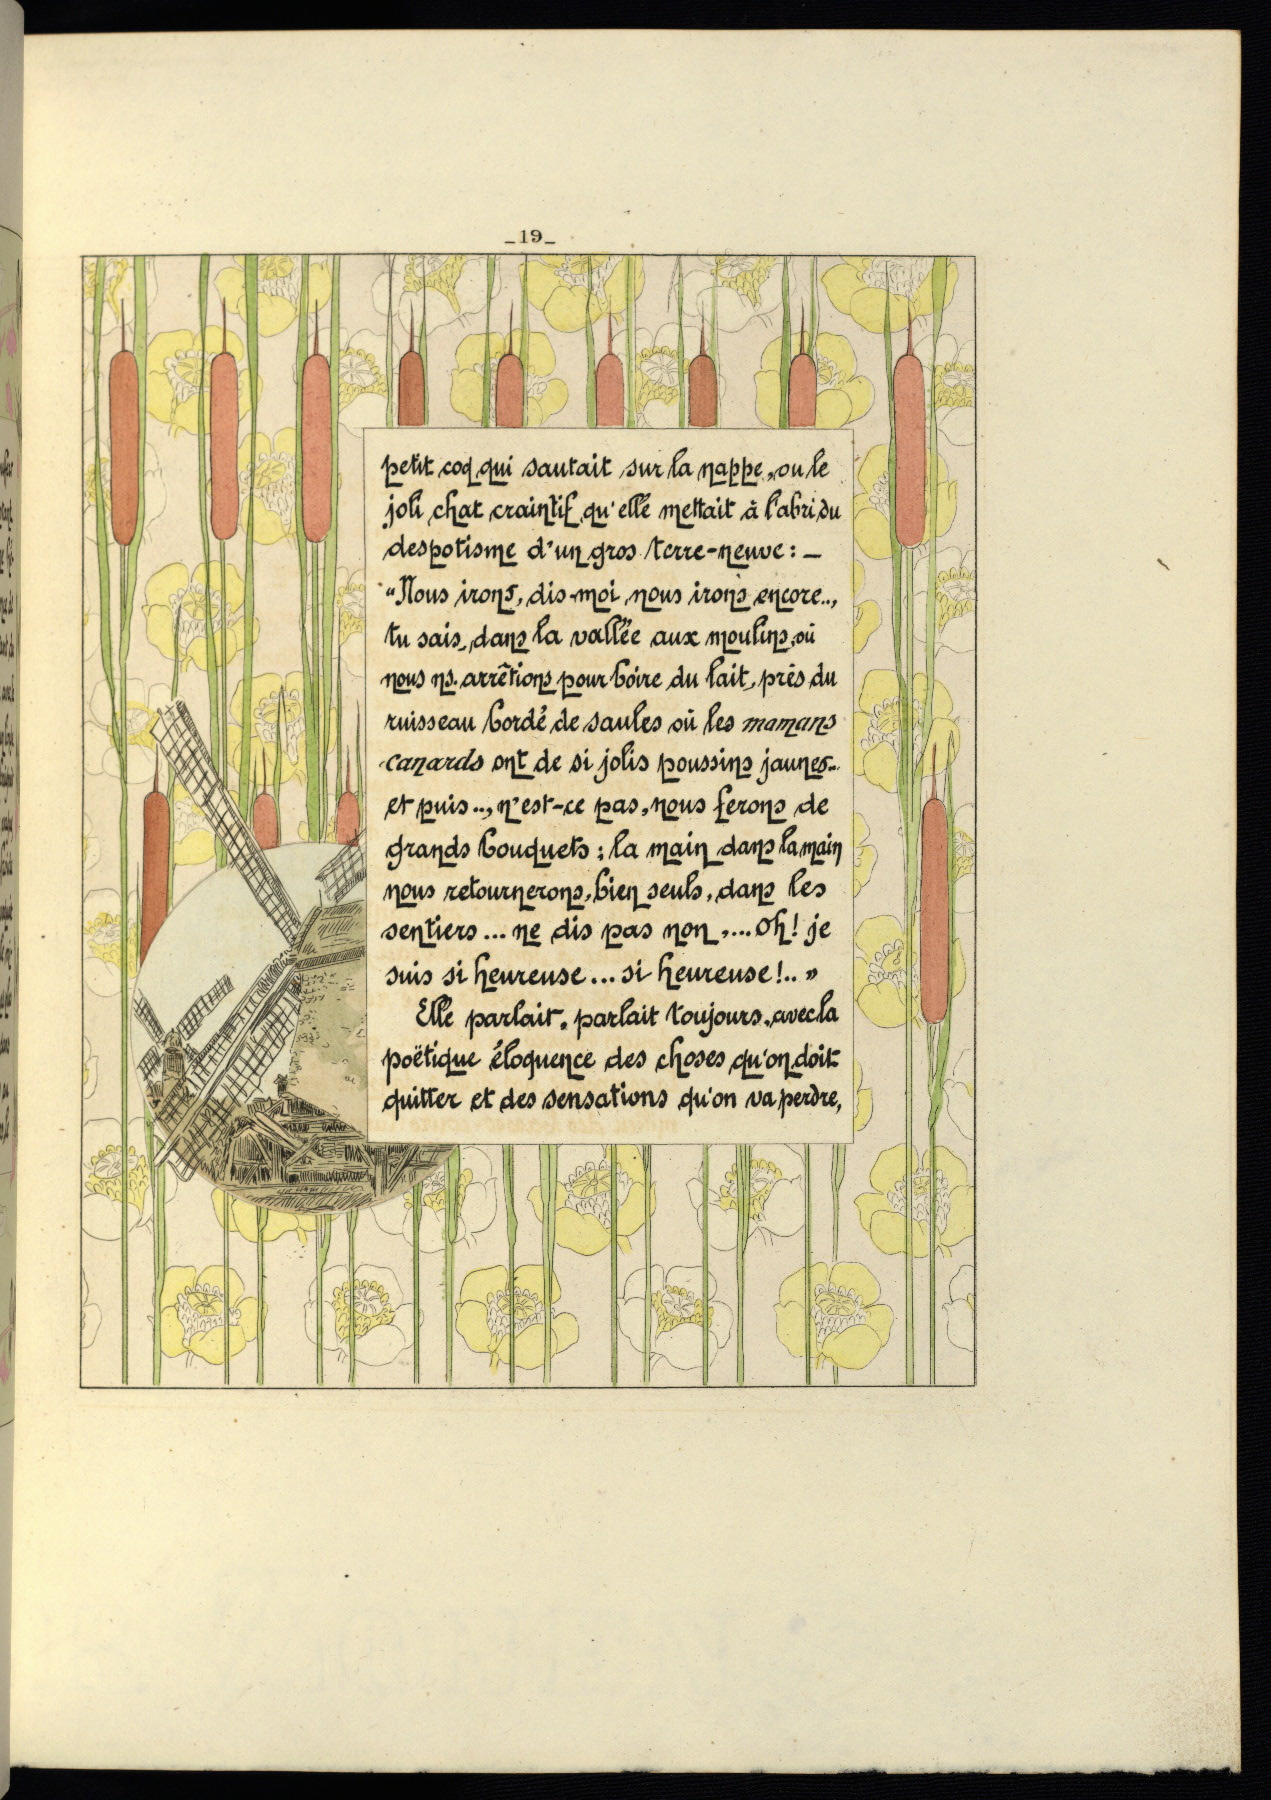 _19_
petit coq qui sautait sur la nappe, ou le
joli chat craintif qu'elle mettait à l'abri du
despotisme d'un gros terre-neuve : _
"Nous irons, dis-moi nous irons encore..,
tu sais, dans la vallée aux moulins, où
nous ns. arrêtions pour boire du lait, près du
ruisseau bordé de saules où les mamans
canards ont de si jolis poussins jaunes..
et puis.., n'est-ce pas, nous ferons de
grands bouquets ; la main dans la main
nous retournerons, bien seuls, dans les
sentiers... ne dis pas non,... Oh! je
suis si heureuse... si heureuse!.. »
Elle parlait, parlait toujours, avec la
poëtique éloquence des choses qu'on doit
quitter et des sensations qu'on va perdre,